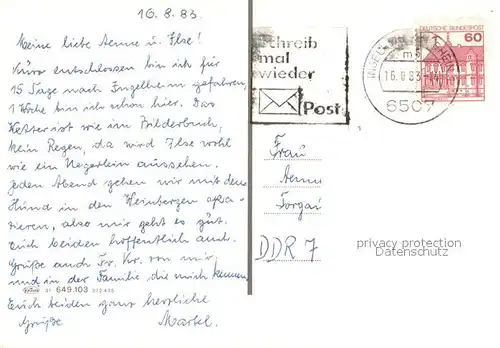 16.8.83.
Meine liebe Aenne u. Else!
Kurz entschlossen bin ich für
15 Tage nach Ingelheim gefahren,
1 Woche bin ich schon hier. Das
Wetter ist wie im Bilderbuch,
kein Regen, da wird Else wohl
wie ein Negerlein aussehen.
Jeden Abend gehen wir mit dem
Hund in den Weinbergen spa-
zieren, also mir geht es gut.
Euch beiden hoffentlich auch.
Grüße auch Fr. Kr. von mir,
und in der Familie die mich kennen.
Euch beiden ganz herzliche
Grüße Martel.
31 649.103
chreib
mal
wieder
Post
16.8.83
6507
DEUTSCHE BUNDESPOST
60
Frau
Aenne
Torgau
DDR 7
privacy protection
Datenschutz